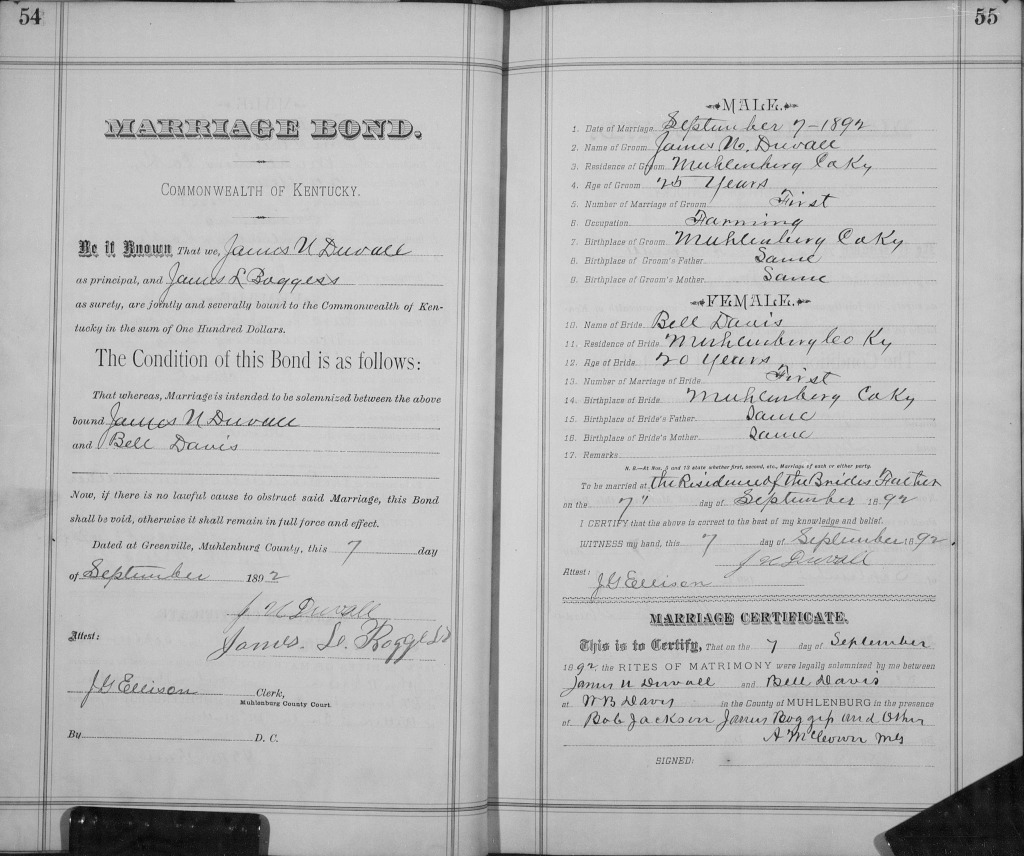 54
MARRIAGE BOND.
COMMONWEALTH OF KENTUCKY.
Be it Known That we, James N Duvall
as principal, and James L Boggess
as surety, are jointly and severally bound to the Commonwealth of Ken-
tucky in the sum of One Hundred Dollars.
The Condition of this Bond is as follows:
That whereas, Marriage is intended to be solemnized between the above
bound James N Duvall
and Bell Davis
Now, if there is no lawful cause to obstruct said Marriage, this Bond
shall be void, otherwise it shall remain in full force and effect.
Dated at Greenville, Muhlenburg County, this 7 day
of September 1892
J N Duvall
James. L. Boggess
Attest:
J G Ellison Clerk,
Muhlenburg County Court.
By D. C.
55
MALE.
1. Date of Marriage September 7-1892
2. Name of Groom James N. Duvall
3. Residence of Groom Muhlenberg Co Ky
4. Age of Groom 25 Years
5. Number of Marriage of Groom First
6. Occupation Farming
7. Birthplace of Groom Muhlenberg Co Ky
8. Birthplace of Groom's Father Same
9. Birthplace of Groom's Mother Same
FEMALE.
10. Name of Bride Bell Davis
11. Residence of Bride Muhlenberg Co Ky
12. Age of Bride 20 Years
13. Number of Marriage of Bride First
14. Birthplace of Bride Muhlenberg Co Ky
15. Birthplace of Bride's Father Same
16. Birthplace of Bride's Mother Same
17. Remarks
N. B.—At Nos. 5 and 13 state whether first, second, etc., Marriage of each or either party.
To be married at the Residence of the Brides Father
on the 7" day of September 1892
I CERTIFY that the above is correct to the best of my knowledge and belief.
WITNESS my hand, this 7 day of September 1892.
J N Duvall
Attest:
J G Ellison
MARRIAGE CERTIFICATE.
This is to Certify, That on the 7 day of September
1892. the RITES OF MATRIMONY were legally solemnized by me between
James N Duvall and Bell Davis
at W B Davis in the County of MUHLENBURG in the presence
of Bob Jackson James Boggess and Other
A McCown
SIGNED: